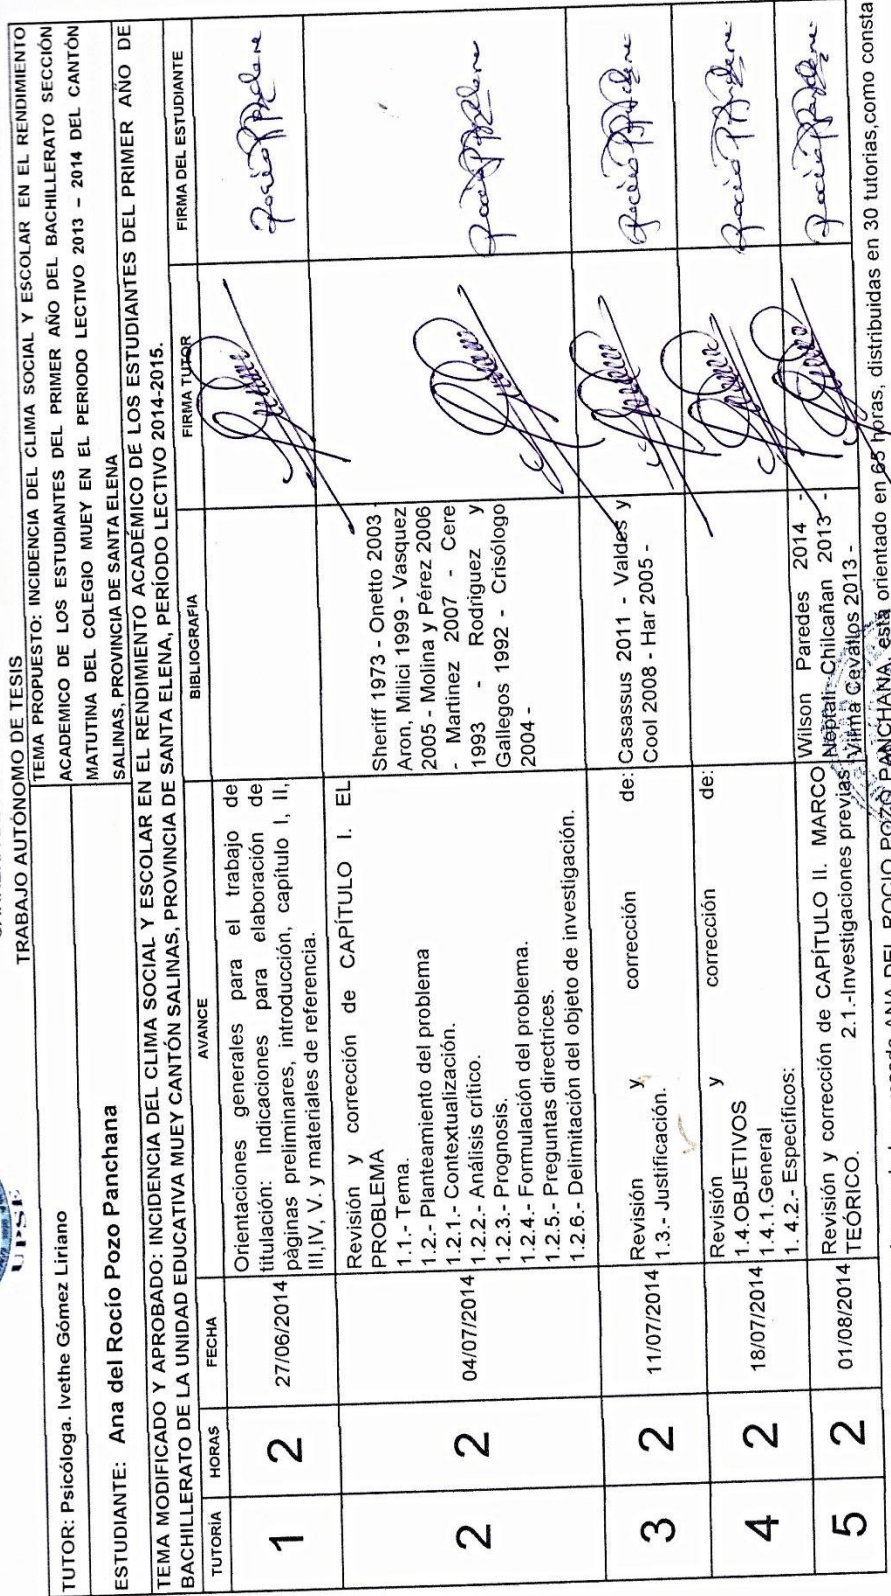 TRABAJO AUTÓNOMO DE TESIS
UPSE
TUTOR: Psicóloga. Ivethe Gómez Liriano
TEMA PROPUESTO: INCIDENCIA DEL CLIMA SOCIAL Y ESCOLAR EN EL RENDIMIENTO
ACADEMICO DE LOS ESTUDIANTES DEL PRIMER AÑO DEL BACHILLERATO SECCIÓN
MATUTINA DEL COLEGIO MUEY EN EL PERIODO LECTIVO 2013 – 2014 DEL CANTÓN
SALINAS, PROVINCIA DE SANTA ELENA
ESTUDIANTE: Ana del Rocío Pozo Panchana
TEMA MODIFICADO Y APROBADO: INCIDENCIA DEL CLIMA SOCIAL Y ESCOLAR EN EL RENDIMIENTO ACADÉMICO DE LOS ESTUDIANTES DEL PRIMER AÑO DE
BACHILLERATO DE LA UNIDAD EDUCATIVA MUEY CANTÓN SALINAS, PROVINCIA DE SANTA ELENA, PERÍODO LECTIVO 2014-2015.
TUTORÍA HORAS FECHA AVANCE BIBLIOGRAFIA FIRMA TUTOR FIRMA DEL ESTUDIANTE
1 2 27/06/2014
Orientaciones generales para el trabajo de
titulación: Indicaciones para elaboración de
pàginas preliminares, introducción, capitulo I, II,
III,IV, V. y materiales de referencia.
2 2 04/07/2014
Revisión y corrección de CAPÍTULO I. EL
PROBLEMA
1.1.- Tema.
1.2.- Planteamiento del problema
1.2.1.- Contextualización.
1.2.2.- Análisis crítico.
1.2.3.- Prognosis.
1.2.4.- Formulación del problema.
1.2.5.- Preguntas directrices.
1.2.6.- Delimitación del objeto de investigación.
Sheriff 1973 - Onetto 2003 -
Aron, Milici 1999 - Vasquez
2005 - Molina y Pérez 2006
- Martinez 2007 - Cere
1993 - Rodriguez y
Gallegos 1992 - Crisólogo
2004 -
3 2 11/07/2014
Revisión y corrección de:
1.3.- Justificación.
Casassus 2011 - Valdes y
Cool 2008 - Har 2005 -
4 2 18/07/2014
Revisión y corrección de:
1.4.OBJETIVOS
1.4.1.General
1. 4.2.- Específicos:
5 2 01/08/2014
Revisión y corrección de CAPÍTULO II. MARCO
TEÓRICO. 2.1.-Investigaciones previas
Wilson Paredes 2014 -
Neptali Chilcañan 2013 -
Vilma Cevallos 2013 -
ANA DEL ROCIO POZO PANCHANA, está orientado en 65 horas, distribuidas en 30 tutorias,como consta